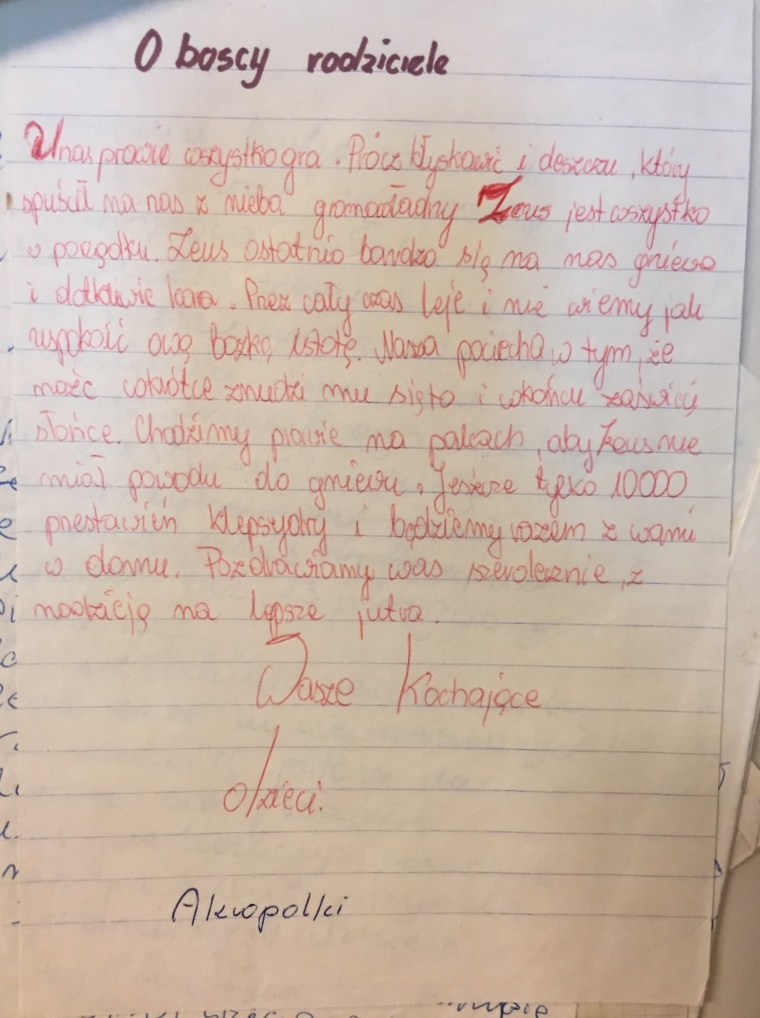 O boscy rodziciele
U nas prawie wszystko gra. Prócz błyskawic i deszczu, który
spuścił na nas z nieba gromowładny Zeus jest wszystko
w porządku. Zeus ostatnio bardzo się na nas gniewa
i dotkliwie kara. Przez cały czas leje i nie wiemy jak
uspokoić ową boską istotę. Nasza pociecha w tym, że
może wkrótce znudzi mu się to i wkońcu zaświeci
słońce. Chodzimy prawie na palcach, aby Zeus nie
miał powodu do gniewu. Jeszcze tylko 10000
przestawień klepsydry i będziemy razem z wami
w domu. Pozdrawiamy was serdecznie, z
nadzieją na lepsze jutro.
Wasze Kochające
dzieci.
Akropolki